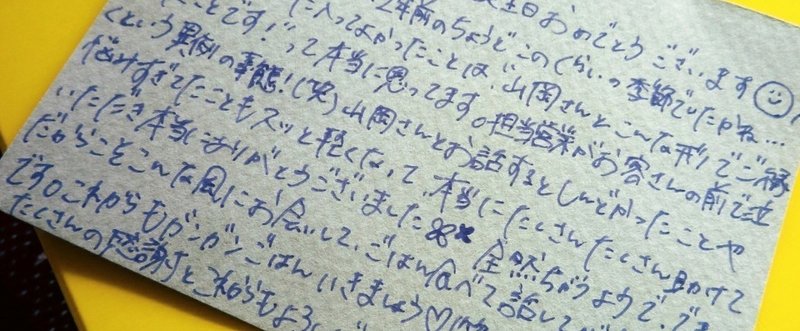 生日おめでとうございます☺
2年前のちょうどこのくらいの季節でしたかね…
に入ってよかったことは、山岡さんとこんな形でご縁
ことです!!って本当に思ってます。担当営業がお客さんの前で泣
くという異例の事態!(笑)山岡さんとお話するとしんどかったことや
悩みすぎてたこともスッと軽くなって、本当にたくさんたくさん助けて
いただき本当にありがとうございました 全然ちがうようで、
だからこそこんな風にお会いして、ごはん食べて話して
です。これからもガンガンごはんいきましょう♡
たくさんの感謝とこれからもよろ